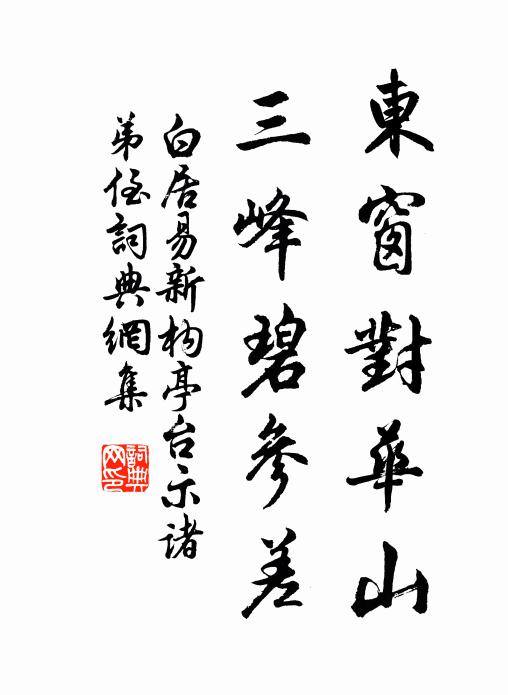 東窗對華山
三峰碧參差
白居易新构亭台示诸
弟侄詞典網集
詞典網印